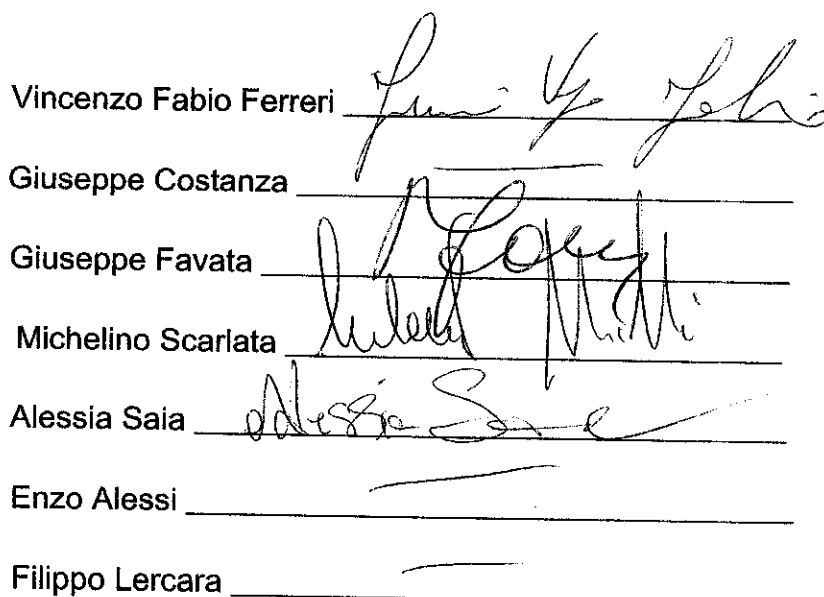 Vincenzo Fabio Ferreri
Giuseppe Costanza
Giuseppe Favata
Michelino Scarlata
Alessia Saia Alessia Saia
Enzo Alessi
Filippo Lercara